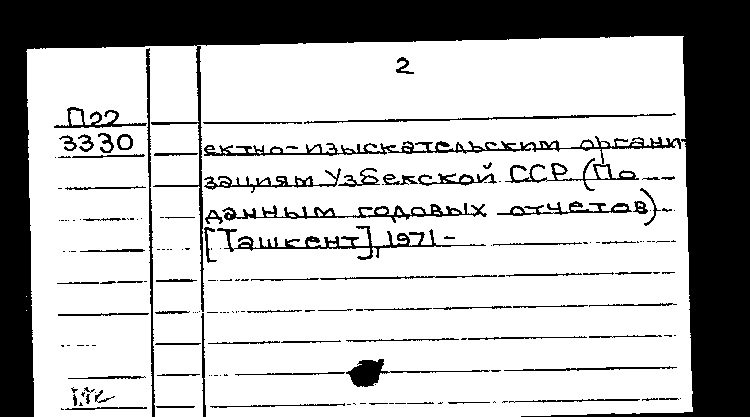 2
П22
3330
ектно-изыскательским органи-
зациям Узбекской ССР (По
данным годовых отчетов)
[Ташкент], 1971-